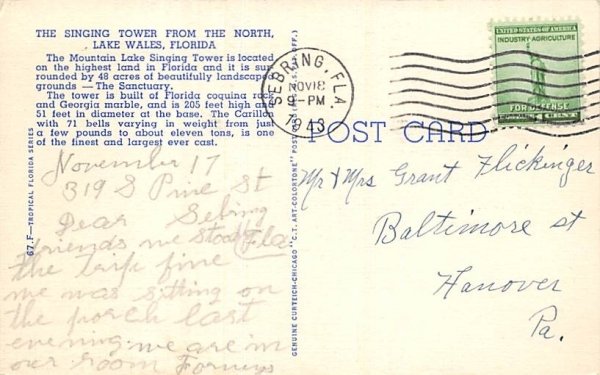 THE SINGING TOWER FROM THE NORTH,
LAKE WALES, FLORIDA
The Mountain Lake Singing Tower is located
on the highest land in Florida and it is sur
rounded by 48 acres of beautifully landscap
grounds — The Sanctuary.
The tower is built of Florida coquina
and Georgia marble, and is 205 feet high an
51 feet in diameter at the base. The Carillo
with 71 bells varying in weight from just
a few pounds to about eleven tons, is one
of the finest and largest ever cast.
67 F—TROPICAL FLORIDA SERIES
November 17
319 S Pine St
Sebring
Fla
Dear
Friends we stood
the trip fine
we was sitting on
the porch last
evening. we are in
our room Forneys
GENUINE CURTEICH-CHICAGO "C.T. ART-COLORTONE" POST
OFF.)
SEBRING, FLA.
NOV 18
9-PM
1943
UNITED STATES OF AMERICA
INDUSTRY AGRICULTURE
FOR DEFENSE
1 CENT
POST CARD
Mr & Mrs Grant Flickinger
Baltimore St
Hanover
Pa.